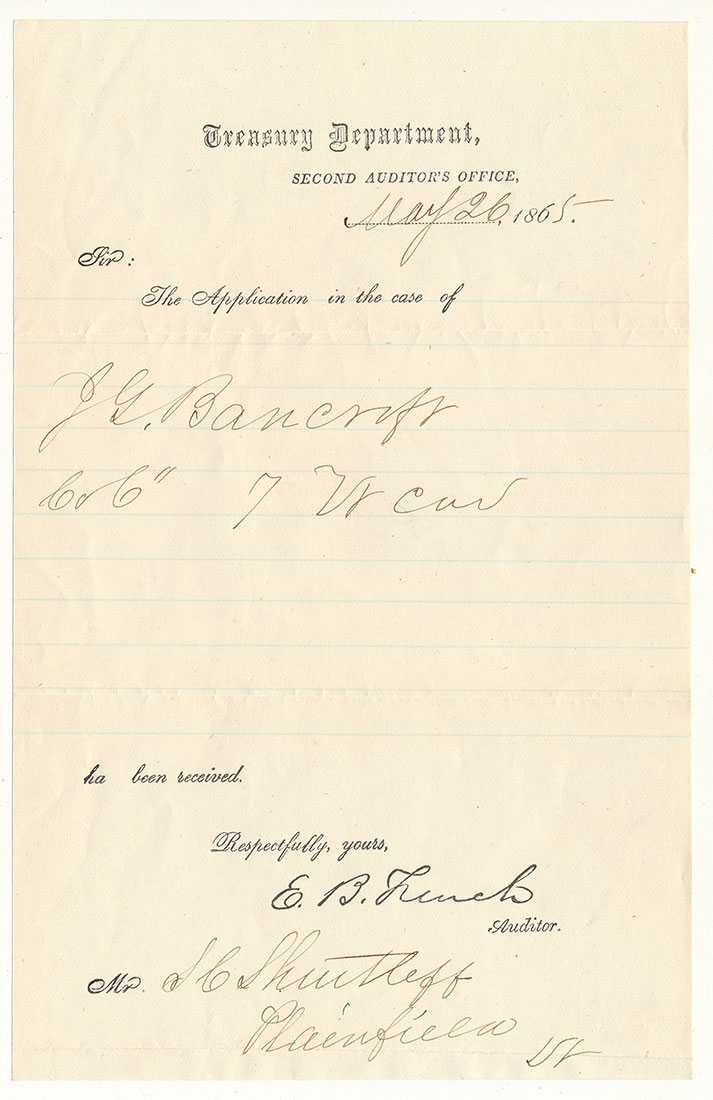 Treasury Department,
SECOND AUDITOR'S OFFICE,
May 26, 1865.
Sir:
The Application in the case of
J G. Bancroft
Co C" 7 Vt Cav
ha been received.
Respectfully, yours,
E. B. French
Auditor.
Mr. S C Shurtleff
Plainfield
Vt